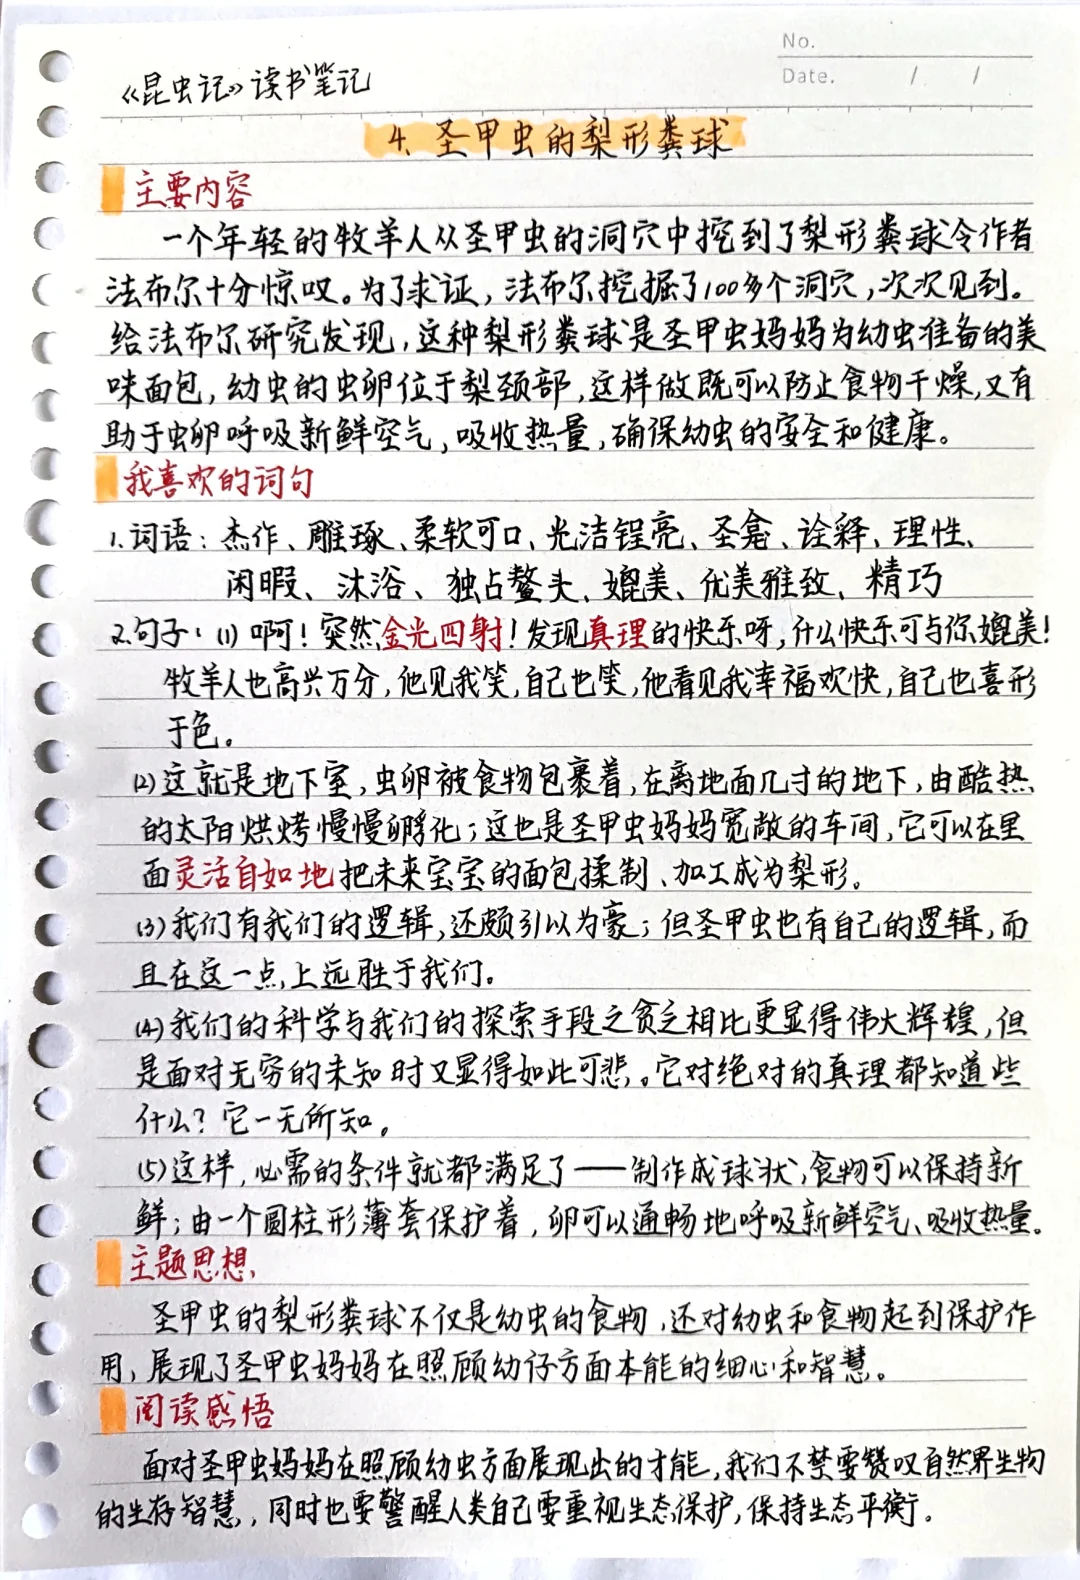 No.
Date. / /
《昆虫记》读书笔记
4、圣甲虫的梨形粪球
主要内容
一个年轻的牧羊人从圣甲虫的洞穴中挖到了梨形粪球令作者
法布尔十分惊叹。为了求证，法布尔挖掘了100多个洞穴，次次见到。
给法布尔研究发现，这种梨形粪球是圣甲虫妈妈为幼虫准备的美
味面包，幼虫的虫卵位于梨颈部，这样做既可以防止食物干燥，又有
助于虫卵呼吸新鲜空气，吸收热量，确保幼虫的安全和健康。
我喜欢的词句
1.词语：杰作、雕琢、柔软可口、光洁锃亮、圣龛、诠释、理性、
闲暇、沐浴、独占鳌头、媲美、优美雅致、精巧
2.句子：(1)啊！突然金光四射！发现真理的快乐呀，什么快乐可与你媲美！
牧羊人也高兴万分，他见我笑，自己也笑，他看见我幸福欢快，自己也喜形
于色。
(2)这就是地下室，虫卵被食物包裹着，在离地面几寸的地下，由酷热
的太阳烘烤慢慢孵化；这也是圣甲虫妈妈宽敞的车间，它可以在里
面灵活自如地把未来宝宝的面包揉制、加工成为梨形。
(3)我们有我们的逻辑，还颇引以为豪；但圣甲虫也有自己的逻辑，而
且在这一点上远胜于我们。
(4)我们的科学与我们的探索手段之贫乏相比更显得伟大辉煌，但
是面对无穷的未知时又显得如此可悲。它对绝对的真理都知道些
什么？它一无所知。
(5)这样，必需的条件就都满足了——制作成球状，食物可以保持新
鲜；由一个圆柱形薄套保护着，卵可以通畅地呼吸新鲜空气、吸收热量。
主题思想
圣甲虫的梨形粪球不仅是幼虫的食物，还对幼虫和食物起到保护作
用，展现了圣甲虫妈妈在照顾幼仔方面本能的细心和智慧。
阅读感悟
面对圣甲虫妈妈在照顾幼虫方面展现出的才能，我们不禁要赞叹自然界生物
的生存智慧，同时也要警醒人类自己要重视生态保护，保持生态平衡。